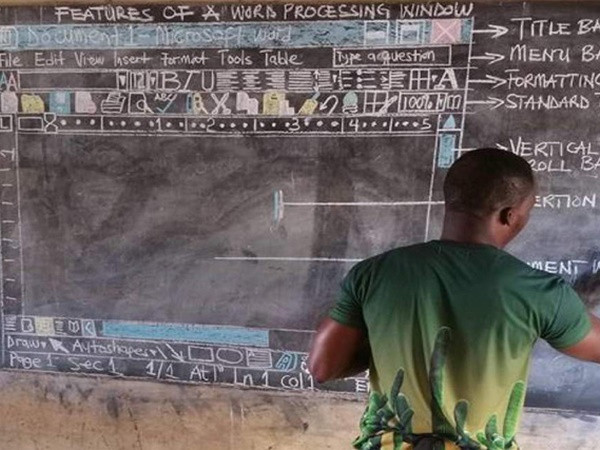 FEATURES OF A WORD PROCESSING WINDOW
Document 1 - Microsoft Word
TITLE BA
File Edit View Insert Format Tools Table
Type a question
MENU BA
B I U
A
FORMATTING
100%
STANDARD T
1 2 3 4 5
VERTICAL
ROLL BA
ERTION
MENT W
Draw
Autoshapes
Page 1 Sec 1 1/1 At Ln 1 Col 1